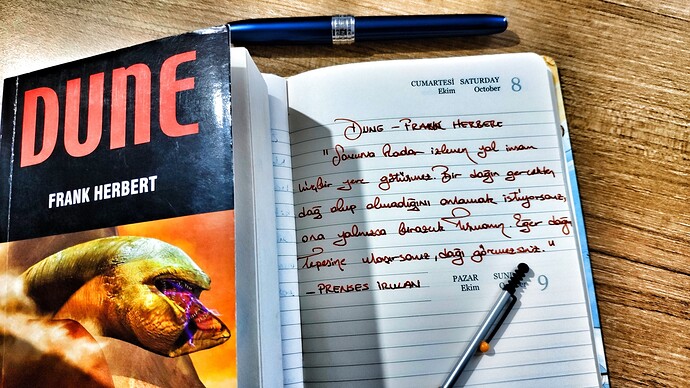 DUNE
FRANK HERBERT
CUMARTESİ SATURDAY
Ekim October 8
DUNE – FRANK HERBERT
"Sonuna kadar izlenen yol insanı
hiçbir yere götürmez. Bir dağın gerçekten
dağ olup olmadığını anlamak istiyorsanız,
ona yalnızca birazcık tırmanın. Eğer dağın
tepesine ulaşırsanız dağı göremezsiniz."
– PRENSES IRULAN
PAZAR
Ekim 9